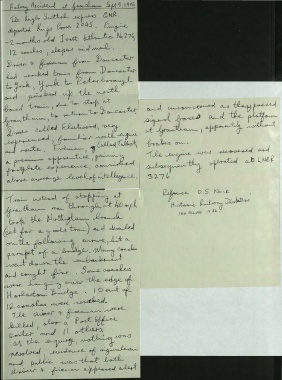 Railway Accident at Grantham Sept 19, 1906
The Eagle Scottish express GNR
departed Kings Cross 2045. Engine
- 2 months old Ivatt Atlantic No 276,
12 coaches, sleepers and mail.
Driver & fireman from Doncaster
had worked train from Doncaster
to York, York to Peterborough
and picked up the north
bound train, due to stop at
Grantham, to return to Doncaster.
Driver called Fleetwood, very
experienced, familiar with engine
and route. Fireman, called Talbot,
a premium apprentice, gaining
footplate experience, considered
above average level of intelligence.
Train instead of stopping at
Grantham through at 40 mph
took the Nottingham branch
(set for a goods train) and derailed
on the following curve, hit a
parapet of a bridge. Many coaches
went down the embankment
and caught fire. Some coaches
were hanging over the edge of
Harlaxton Bridge. 10 out of
12 coaches were wrecked.
The driver & fireman were
killed, also a Post Office
sorter and 11 others.
At the enquiry, nothing was
resolved, evidence of signalman
and public was that both
driver & fireman appeared alert
and unconcerned as they passed
signal boxes and the platform
at Grantham, apparently without
brakes on.
The engine was recovered and
subsequently operated as LNER
3276
Reference O.S. Nock
Historic Railway Disasters